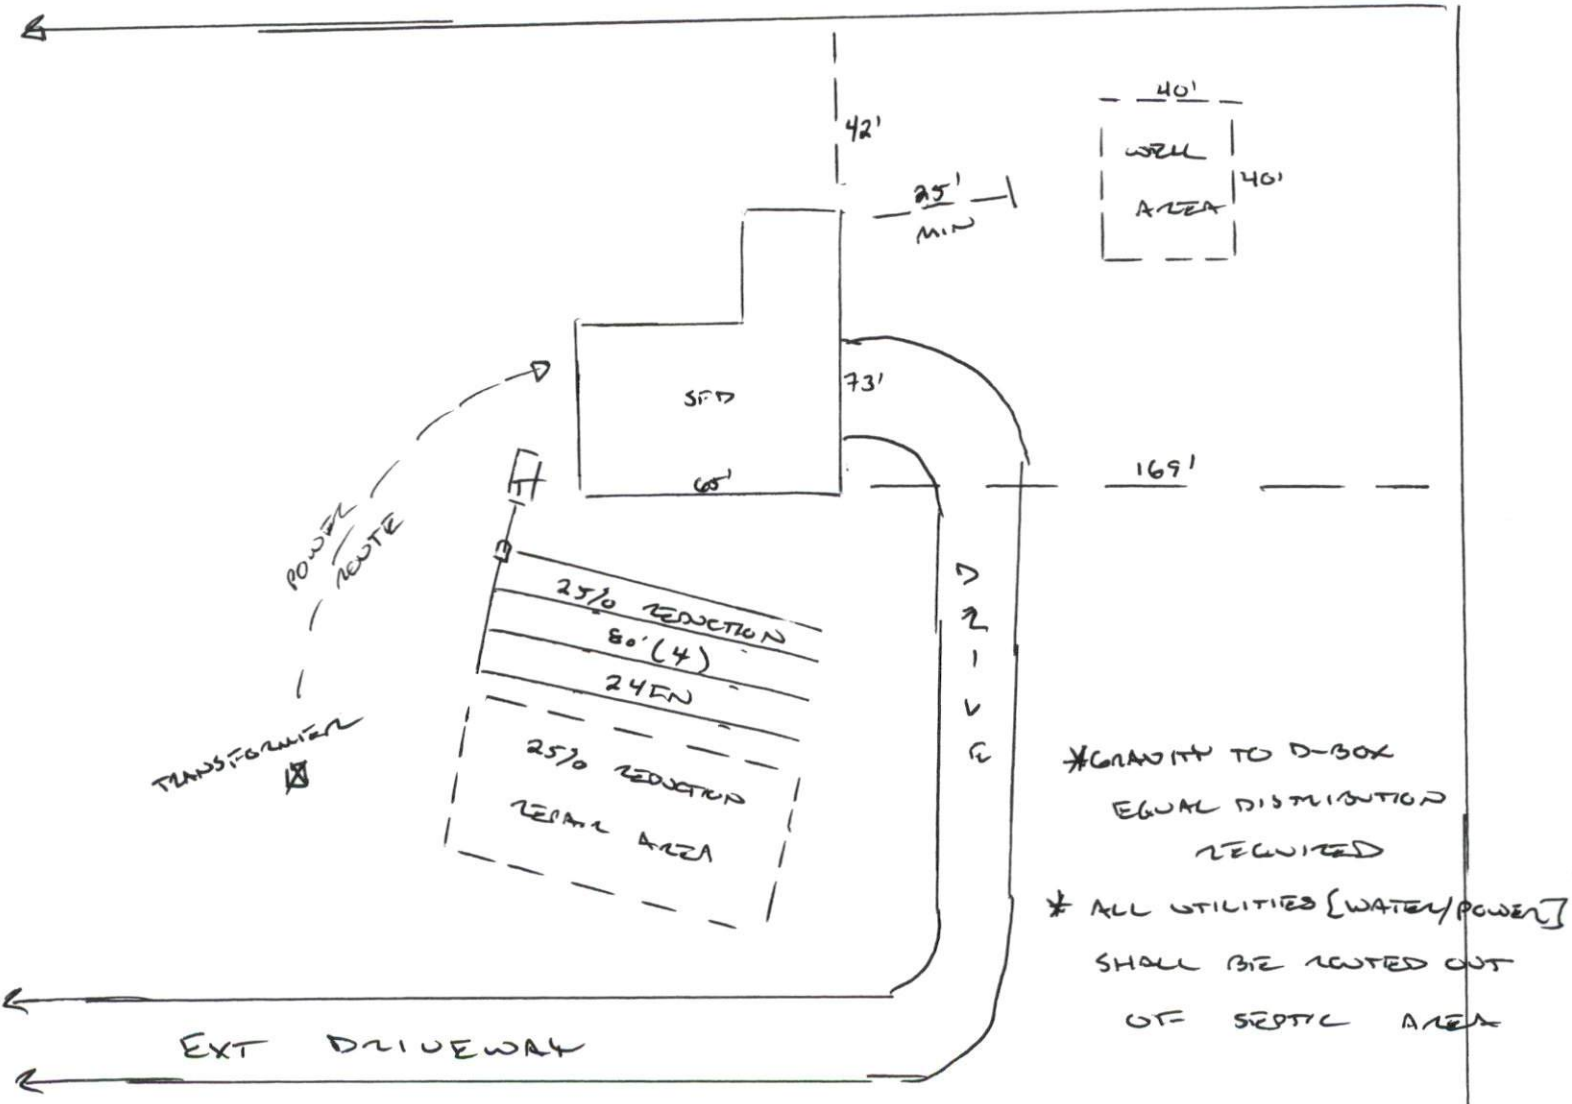 42'
40'
WELL
AREA
40'
25'
MIN
SFD
73'
65'
169'
POWER
ROUTE
TRANSFORMER
25% REDUCTION
80' (4)
24IN
25% REDUCTION
REPAIR AREA
DRIVE
*GRAVITY TO D-BOX
EQUAL DISTRIBUTION
REQUIRED
* ALL UTILITIES [WATER/POWER]
SHALL BE ROUTED OUT
OF SEPTIC AREA
EXT DRIVEWAY